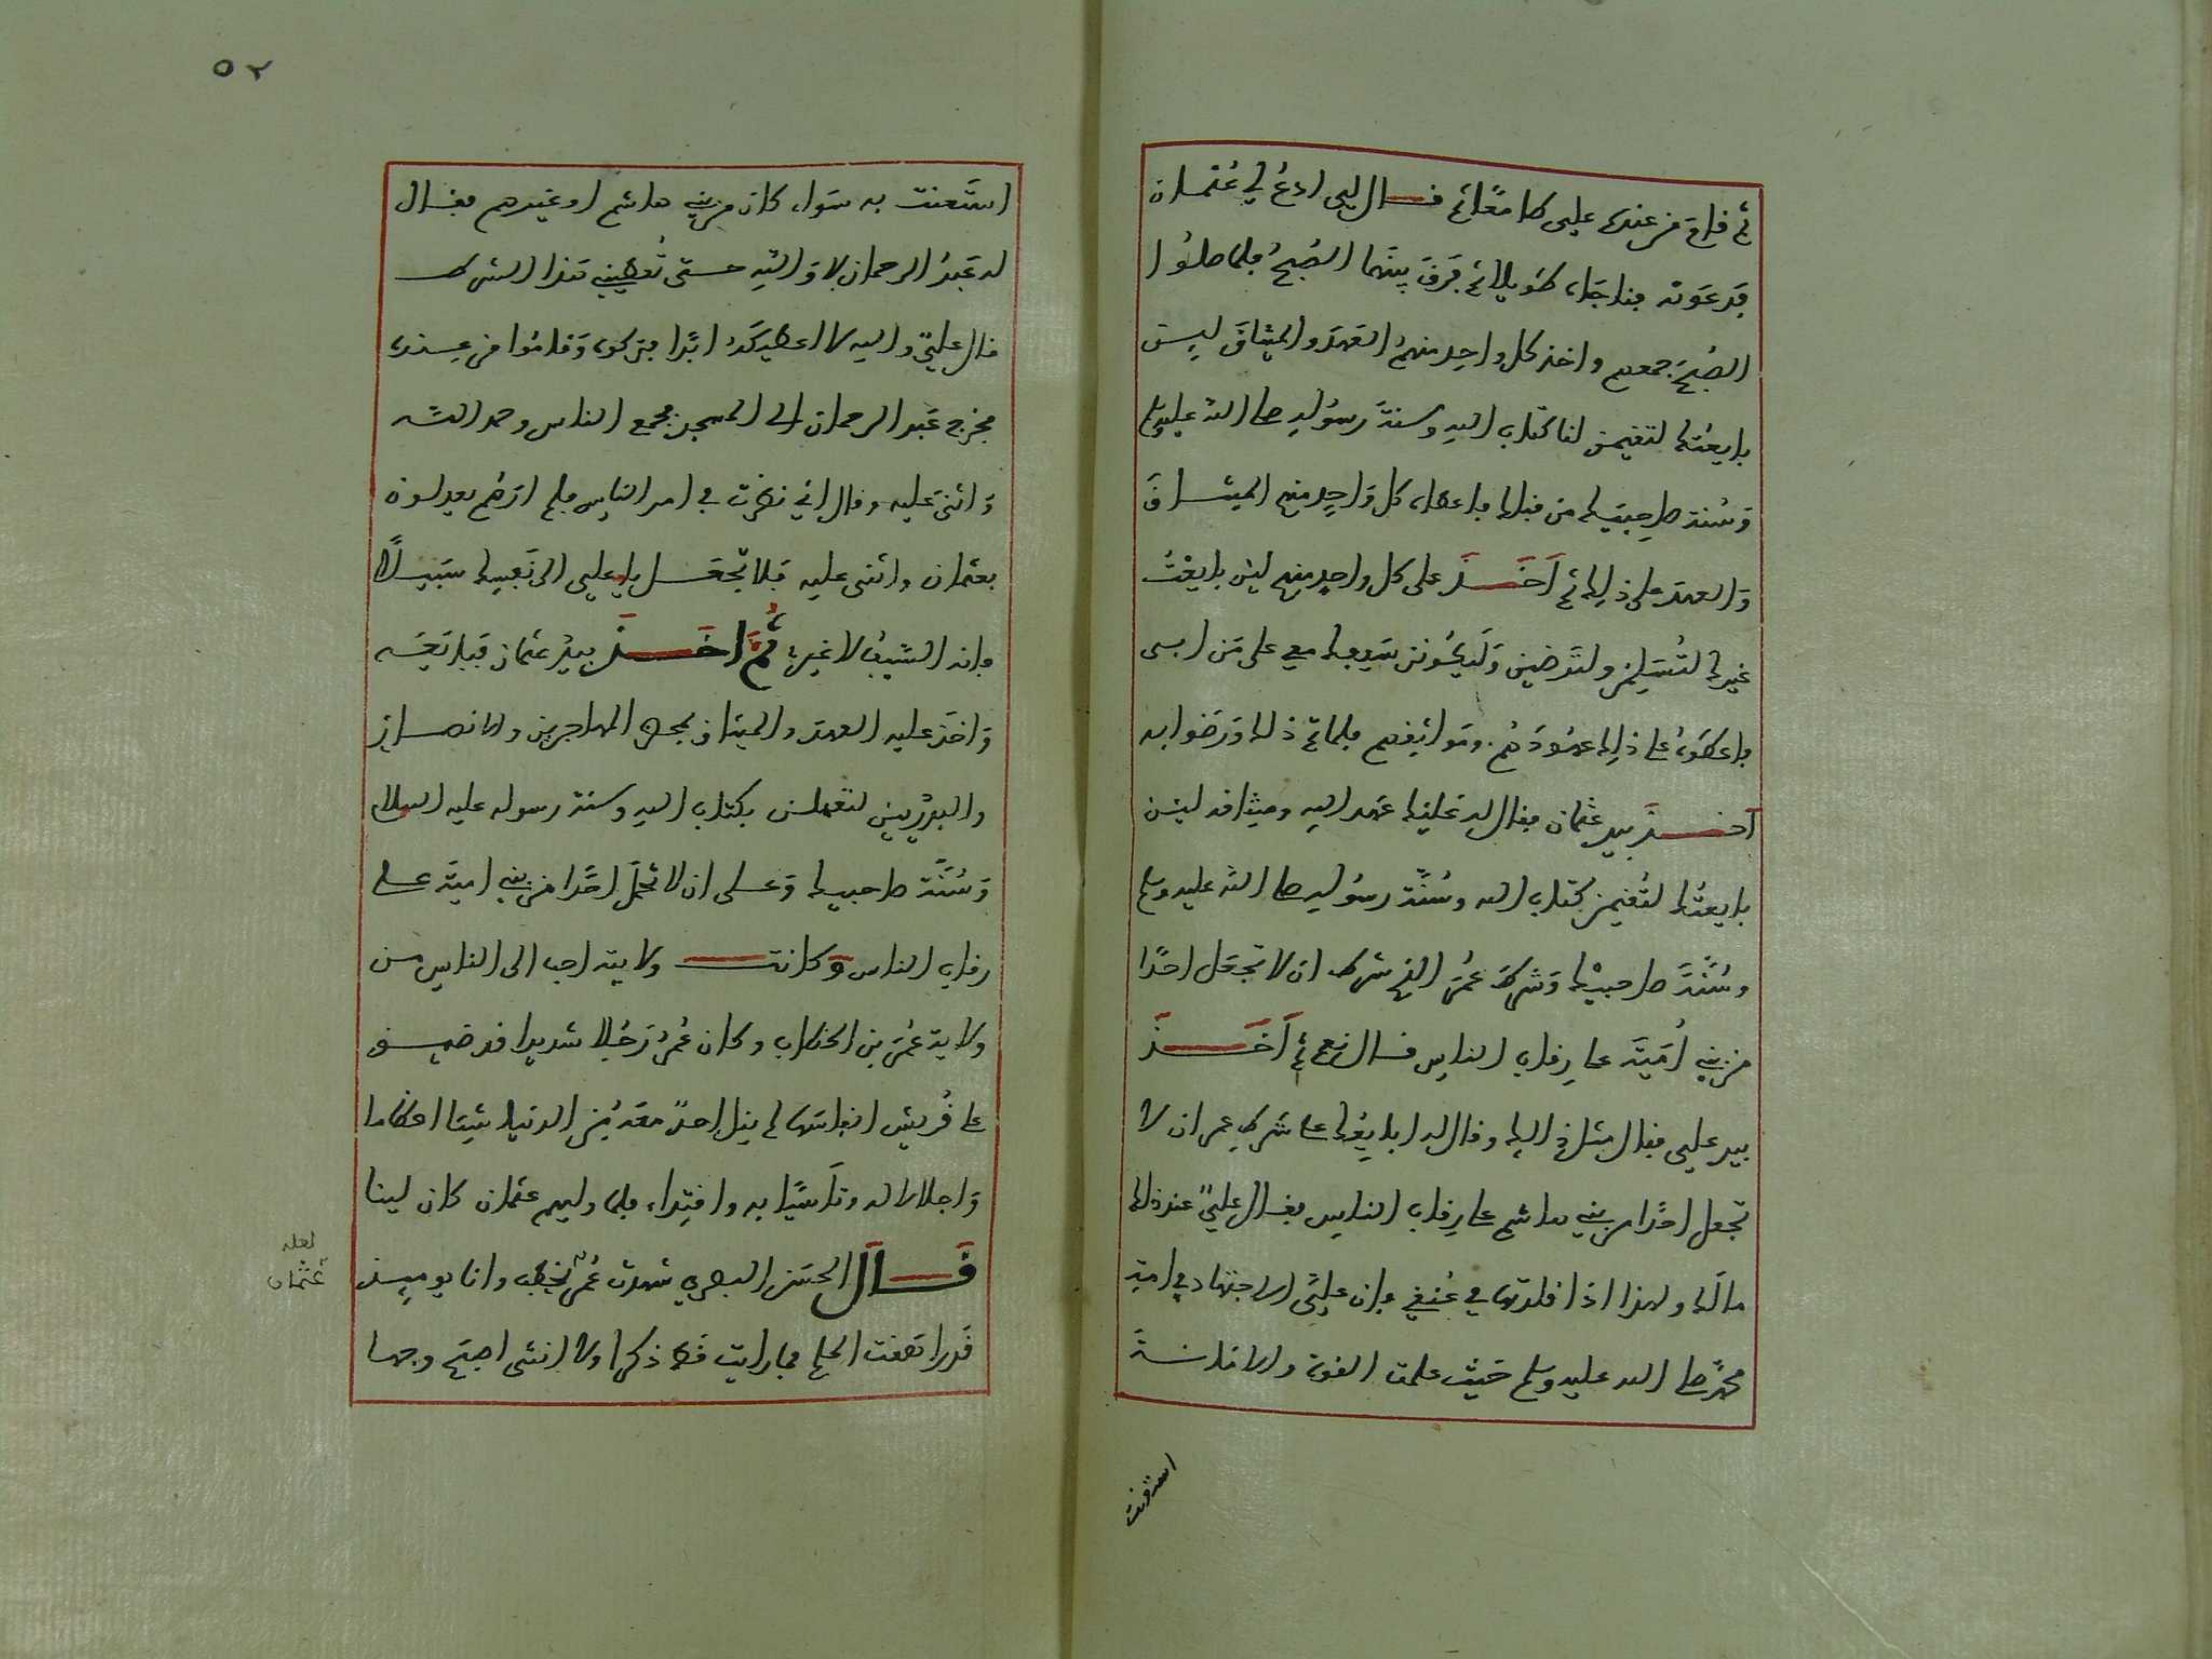 ثم قام من عنده علي طامعا ثم قال لي ادع لي عثمان
فدعوته فناجاه طويلا ثم فرق بينهما الصبح فلما صلوا
الصبح جمعهم واخذ كل واحد منهم العهد والميثاق ليس
بايعتك لتقيمن لنا كتاب الله وسنة رسوله صلى الله عليه وسلم
وسنة صاحبيك من قبلك فاعطاه كل واحد منهم الميثاق
والعهد على ذلك ثم اخذ على كل واحد منهم لين بايعت
غيرك لتسلمن ولترضين وليكونن سيفك معي على من ابى
فاعطوه على ذلك عهودهم ومواثيقهم فلما تم ذلك ورضوا به
اخذ بيد عثمان فقال له عليك عهد الله وميثاقه لين
بايعتك لتقيمن كتاب الله وسنة رسوله صلى الله عليه وسلم
وسنة صاحبيك وشرط عمر الذي شرط ان لا تجعل احدا
من بني امية على رقاب الناس فقال نعم ثم اخذ
بيد علي فقال مثل ذلك وقال له ابايعك على شرط عمر ان لا
تجعل احدا من بني هاشم على رقاب الناس فقال علي عند ذلك
مالك ولهذا اذا قلدتها في عنقي فإن علي الاجتهاد في امة
محمد صلى الله عليه وسلم حيث علمت القوة والامانة
استعنت
٥٢
استعنت به سواء كان من بني هاشم او غيرهم فقال
له عبد الرحمان لا والله حتى تعطيني هذا الشرط
قال علي والله لا اعطيكه ابدا فتركوه وقاموا من عنده
فخرج عبد الرحمان الى المسجد فجمع الناس وحمد الله
واثنى عليه وقال اني نظرت في امر الناس فلم ارهم يعدلون
بعثمان واثنى عليه فلا تجعل يا علي الى نفسك سبيلا
فإنه السيف لا غير ثم اخذ بيد عثمان فبايعه
واخذ عليه العهد والميثاق بمحضر المهاجرين والانصار
والبدريين لتعملن بكتاب الله وسنة رسوله عليه السلام
وسنة صاحبيك وعلى ان لا تحمل احدا من بني امية على
رقاب الناس وكانت ولايته احب الى الناس من
ولاية عمر بن الخطاب وكان عمر رجلا شديدا قد ضيق
على قريش انفاسها لم ينل احد معه من الدنيا شيئا اعظاما
واجلالا له وتأسيا به واقتداء فلما وليهم عثمان كان لينا
قال الحسن البصري شهدت عمر يخطب وانا يوميذ
قد راهقت الحلم فما رايت قط ذكرا ولا انثى اصبح وجها
لعله
عثمان